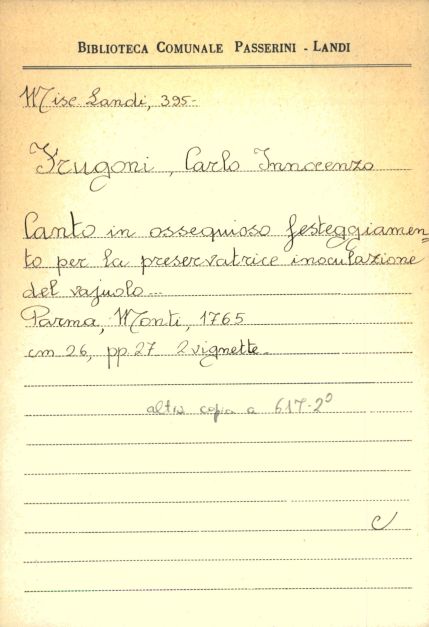 BIBLIOTECA COMUNALE PASSERINI - LANDI
Misc Landi, 395-
Frugoni, Carlo Innocenzo
Canto in ossequioso festeggiamen=
to per la preservatrice inoculazione
del vajuolo...
Parma, Monti, 1765
cm 26, pp. 27 2 vignette.
altra copia a 617-2º
C